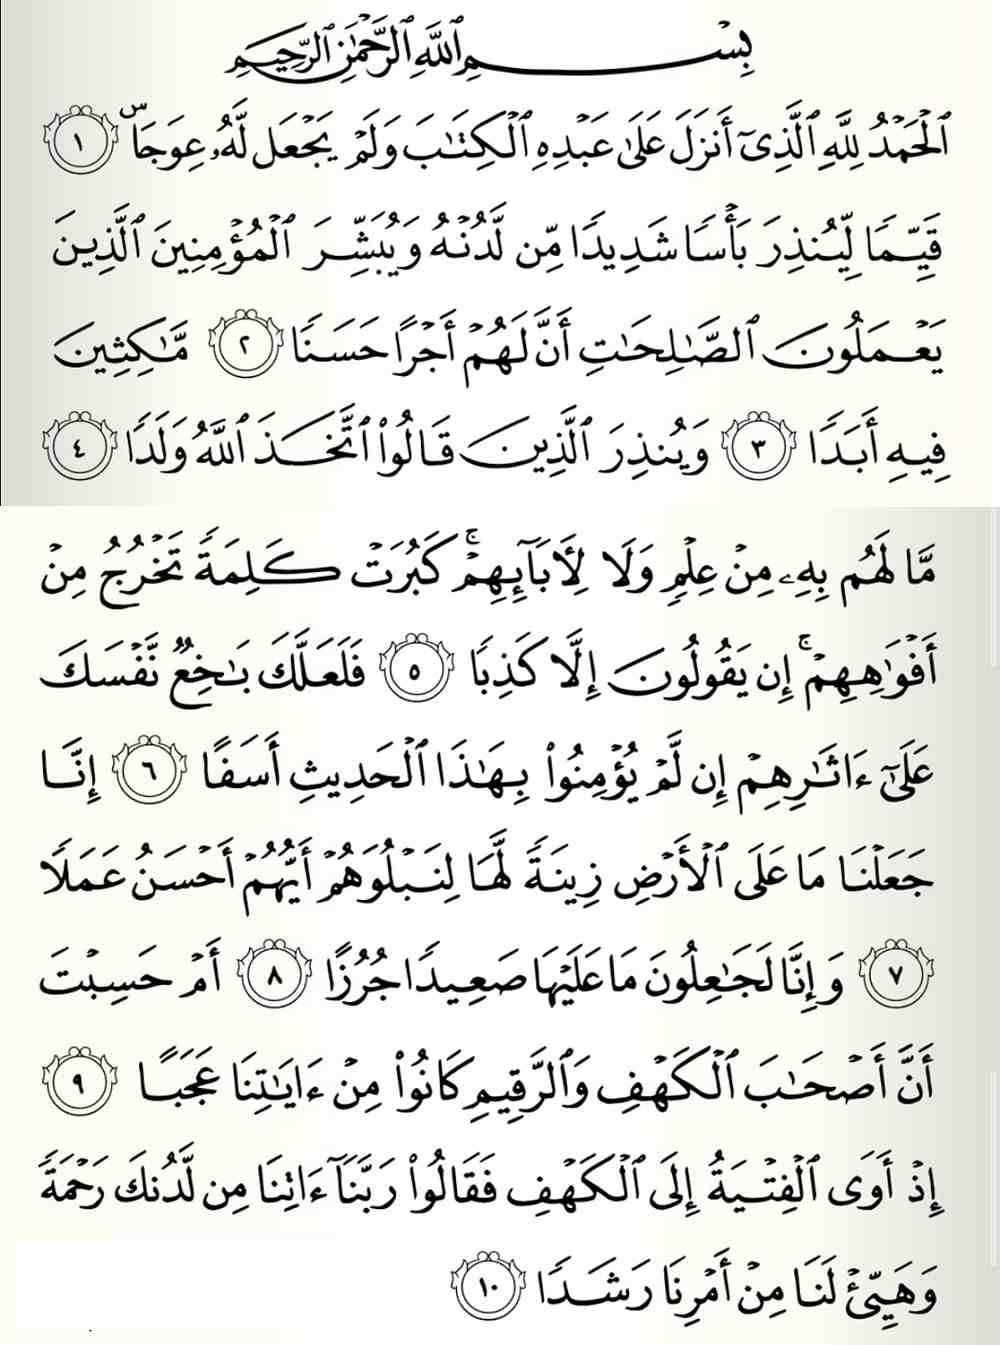 بِسْمِ ٱللَّهِ ٱلرَّحْمَٰنِ ٱلرَّحِيمِ
ٱلْحَمْدُ لِلَّهِ ٱلَّذِىٓ أَنزَلَ عَلَىٰ عَبْدِهِ ٱلْكِتَٰبَ وَلَمْ يَجْعَل لَّهُۥ عِوَجَاۜ ١
قَيِّمًا لِّيُنذِرَ بَأْسًا شَدِيدًا مِّن لَّدُنْهُ وَيُبَشِّرَ ٱلْمُؤْمِنِينَ ٱلَّذِينَ
يَعْمَلُونَ ٱلصَّٰلِحَٰتِ أَنَّ لَهُمْ أَجْرًا حَسَنًا ٢ مَّٰكِثِينَ
فِيهِ أَبَدًا ٣ وَيُنذِرَ ٱلَّذِينَ قَالُوا۟ ٱتَّخَذَ ٱللَّهُ وَلَدًا ٤
مَّا لَهُم بِهِۦ مِنْ عِلْمٍ وَلَا لِءَابَآئِهِمْ ۚ كَبُرَتْ كَلِمَةً تَخْرُجُ مِنْ
أَفْوَٰهِهِمْ ۚ إِن يَقُولُونَ إِلَّا كَذِبًا ٥ فَلَعَلَّكَ بَٰخِعٌ نَّفْسَكَ
عَلَىٰٓ ءَاثَٰرِهِمْ إِن لَّمْ يُؤْمِنُوا۟ بِهَٰذَا ٱلْحَدِيثِ أَسَفًا ٦ إِنَّا
جَعَلْنَا مَا عَلَى ٱلْأَرْضِ زِينَةً لَّهَا لِنَبْلُوَهُمْ أَيُّهُمْ أَحْسَنُ عَمَلًا
٧ وَإِنَّا لَجَٰعِلُونَ مَا عَلَيْهَا صَعِيدًا جُرُزًا ٨ أَمْ حَسِبْتَ
أَنَّ أَصْحَٰبَ ٱلْكَهْفِ وَٱلرَّقِيمِ كَانُوا۟ مِنْ ءَايَٰتِنَا عَجَبًا ٩
إِذْ أَوَى ٱلْفِتْيَةُ إِلَى ٱلْكَهْفِ فَقَالُوا۟ رَبَّنَآ ءَاتِنَا مِن لَّدُنكَ رَحْمَةً
وَهَيِّئْ لَنَا مِنْ أَمْرِنَا رَشَدًا ١٠